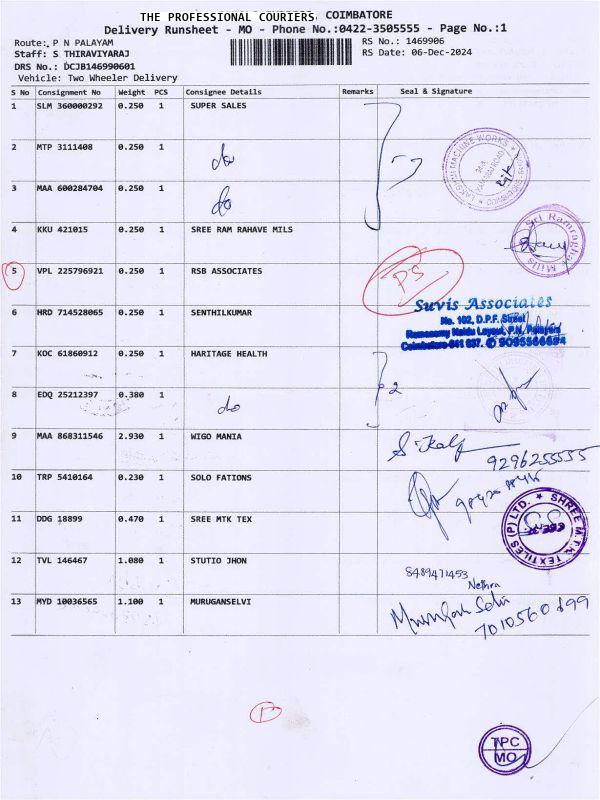 THE PROFESSIONAL COURIERS COIMBATORE
Delivery Runsheet - MO - Phone No.:0422-3505555 - Page No.:1
Route: P N PALAYAM
RS No.: 1469906
Staff: S THIRAVIYARAJ
RS Date: 06-Dec-2024
DRS No.: DCJB146990601
Vehicle: Two Wheeler Delivery
S No Consignment No Weight PCS Consignee Details Remarks Seal & Signature
1 SLM 360000292 0.250 1 SUPER SALES
2 MTP 3111408 0.250 1 do
LAKSHMI MACHINE WORKS
3 MAA 600284704 0.250 1 do
4 KKU 421015 0.250 1 SREE RAM RAHAVE MILS
Sri Ramraghav Mills
5 VPL 225796921 0.250 1 RSB ASSOCIATES
PS
Suvis Associates
6 HRD 714528065 0.250 1 SENTHILKUMAR
No. 102, D.P.F. Street
Ramasamy Naidu Layout, P.N. Palayam
Coimbatore-641 037. ✆ 9095566694
7 KOC 61860912 0.250 1 HARITAGE HEALTH
8 EDQ 25212397 0.380 1 do
2
9 MAA 868311546 2.930 1 WIGO MANIA
9296255555
10 TRP 5410164 0.230 1 SOLO FATIONS
11 DDG 18899 0.470 1 SREE MTK TEX
SHREE M.T.K. TEXTILES (P) LTD.
12 TVL 146467 1.080 1 STUTIO JHON
8489471453
Nethra
13 MYD 10036565 1.100 1 MURUGANSELVI
Murugan Selvi
7010560899
TPC
MO